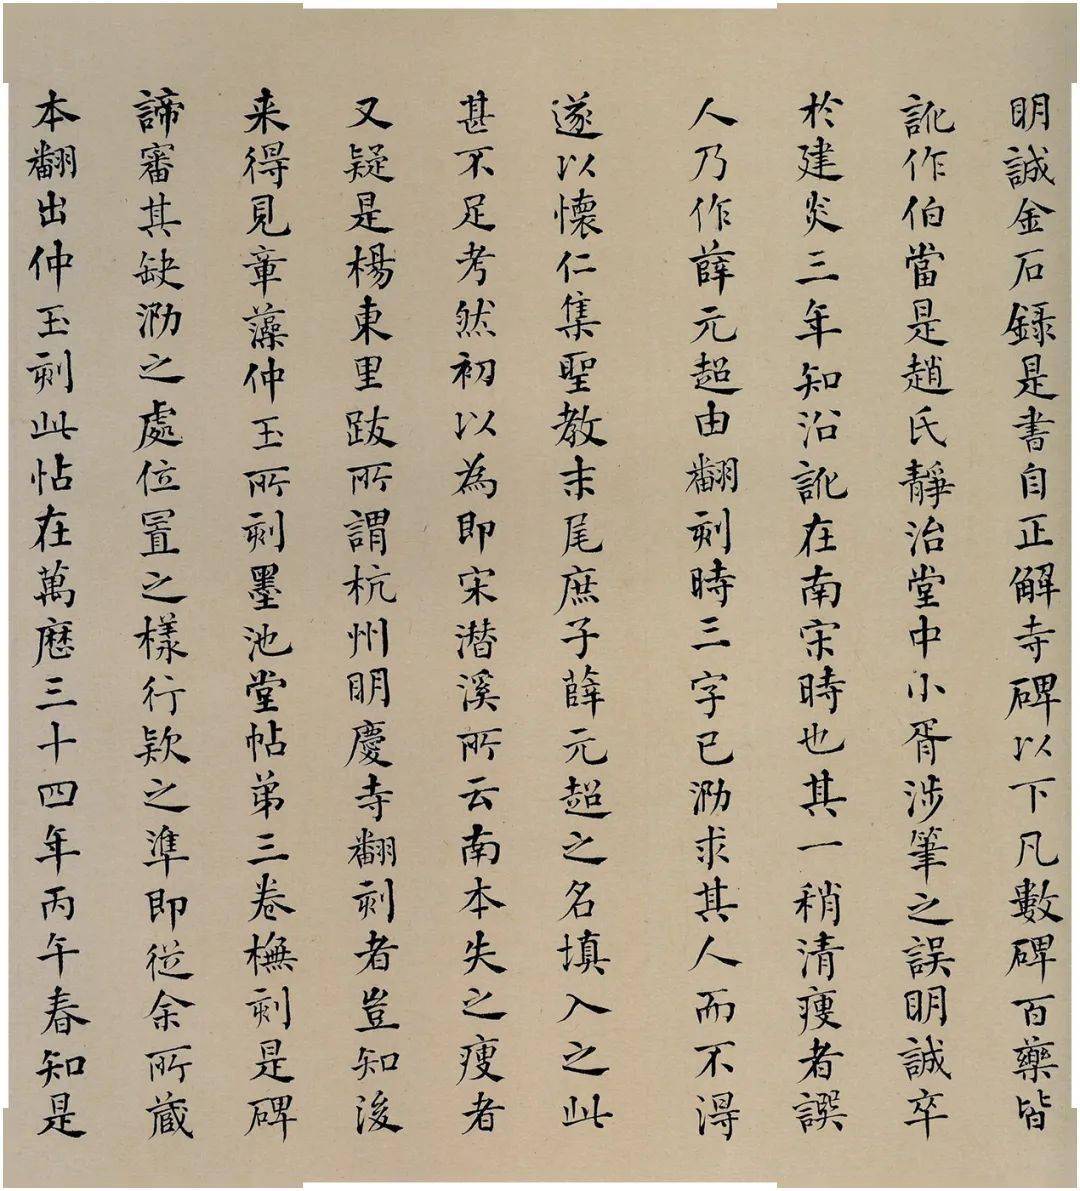 明誠金石録是書自正解寺碑以下凡數碑百藥皆
訛作伯當是趙氏靜治堂中小胥涉筆之誤明誠卒
於建炎三年知沿訛在南宋時也其一稍清瘦者譔
人乃作薛元超由翻刻時三字已泐求其人而不得
遂以懷仁集聖教末尾庶子薛元超之名填入之此
甚不足考然初以為即宋潛溪所云南本失之瘦者
又疑是楊東里跋所謂杭州明慶寺翻刻者豈知後
来得見章藻仲玉所刻墨池堂帖弟三卷橅刻是碑
諦審其缺泐之處位置之樣行款之準即從余所蔵
本翻出仲玉刻此帖在萬歷三十四年丙午春知是